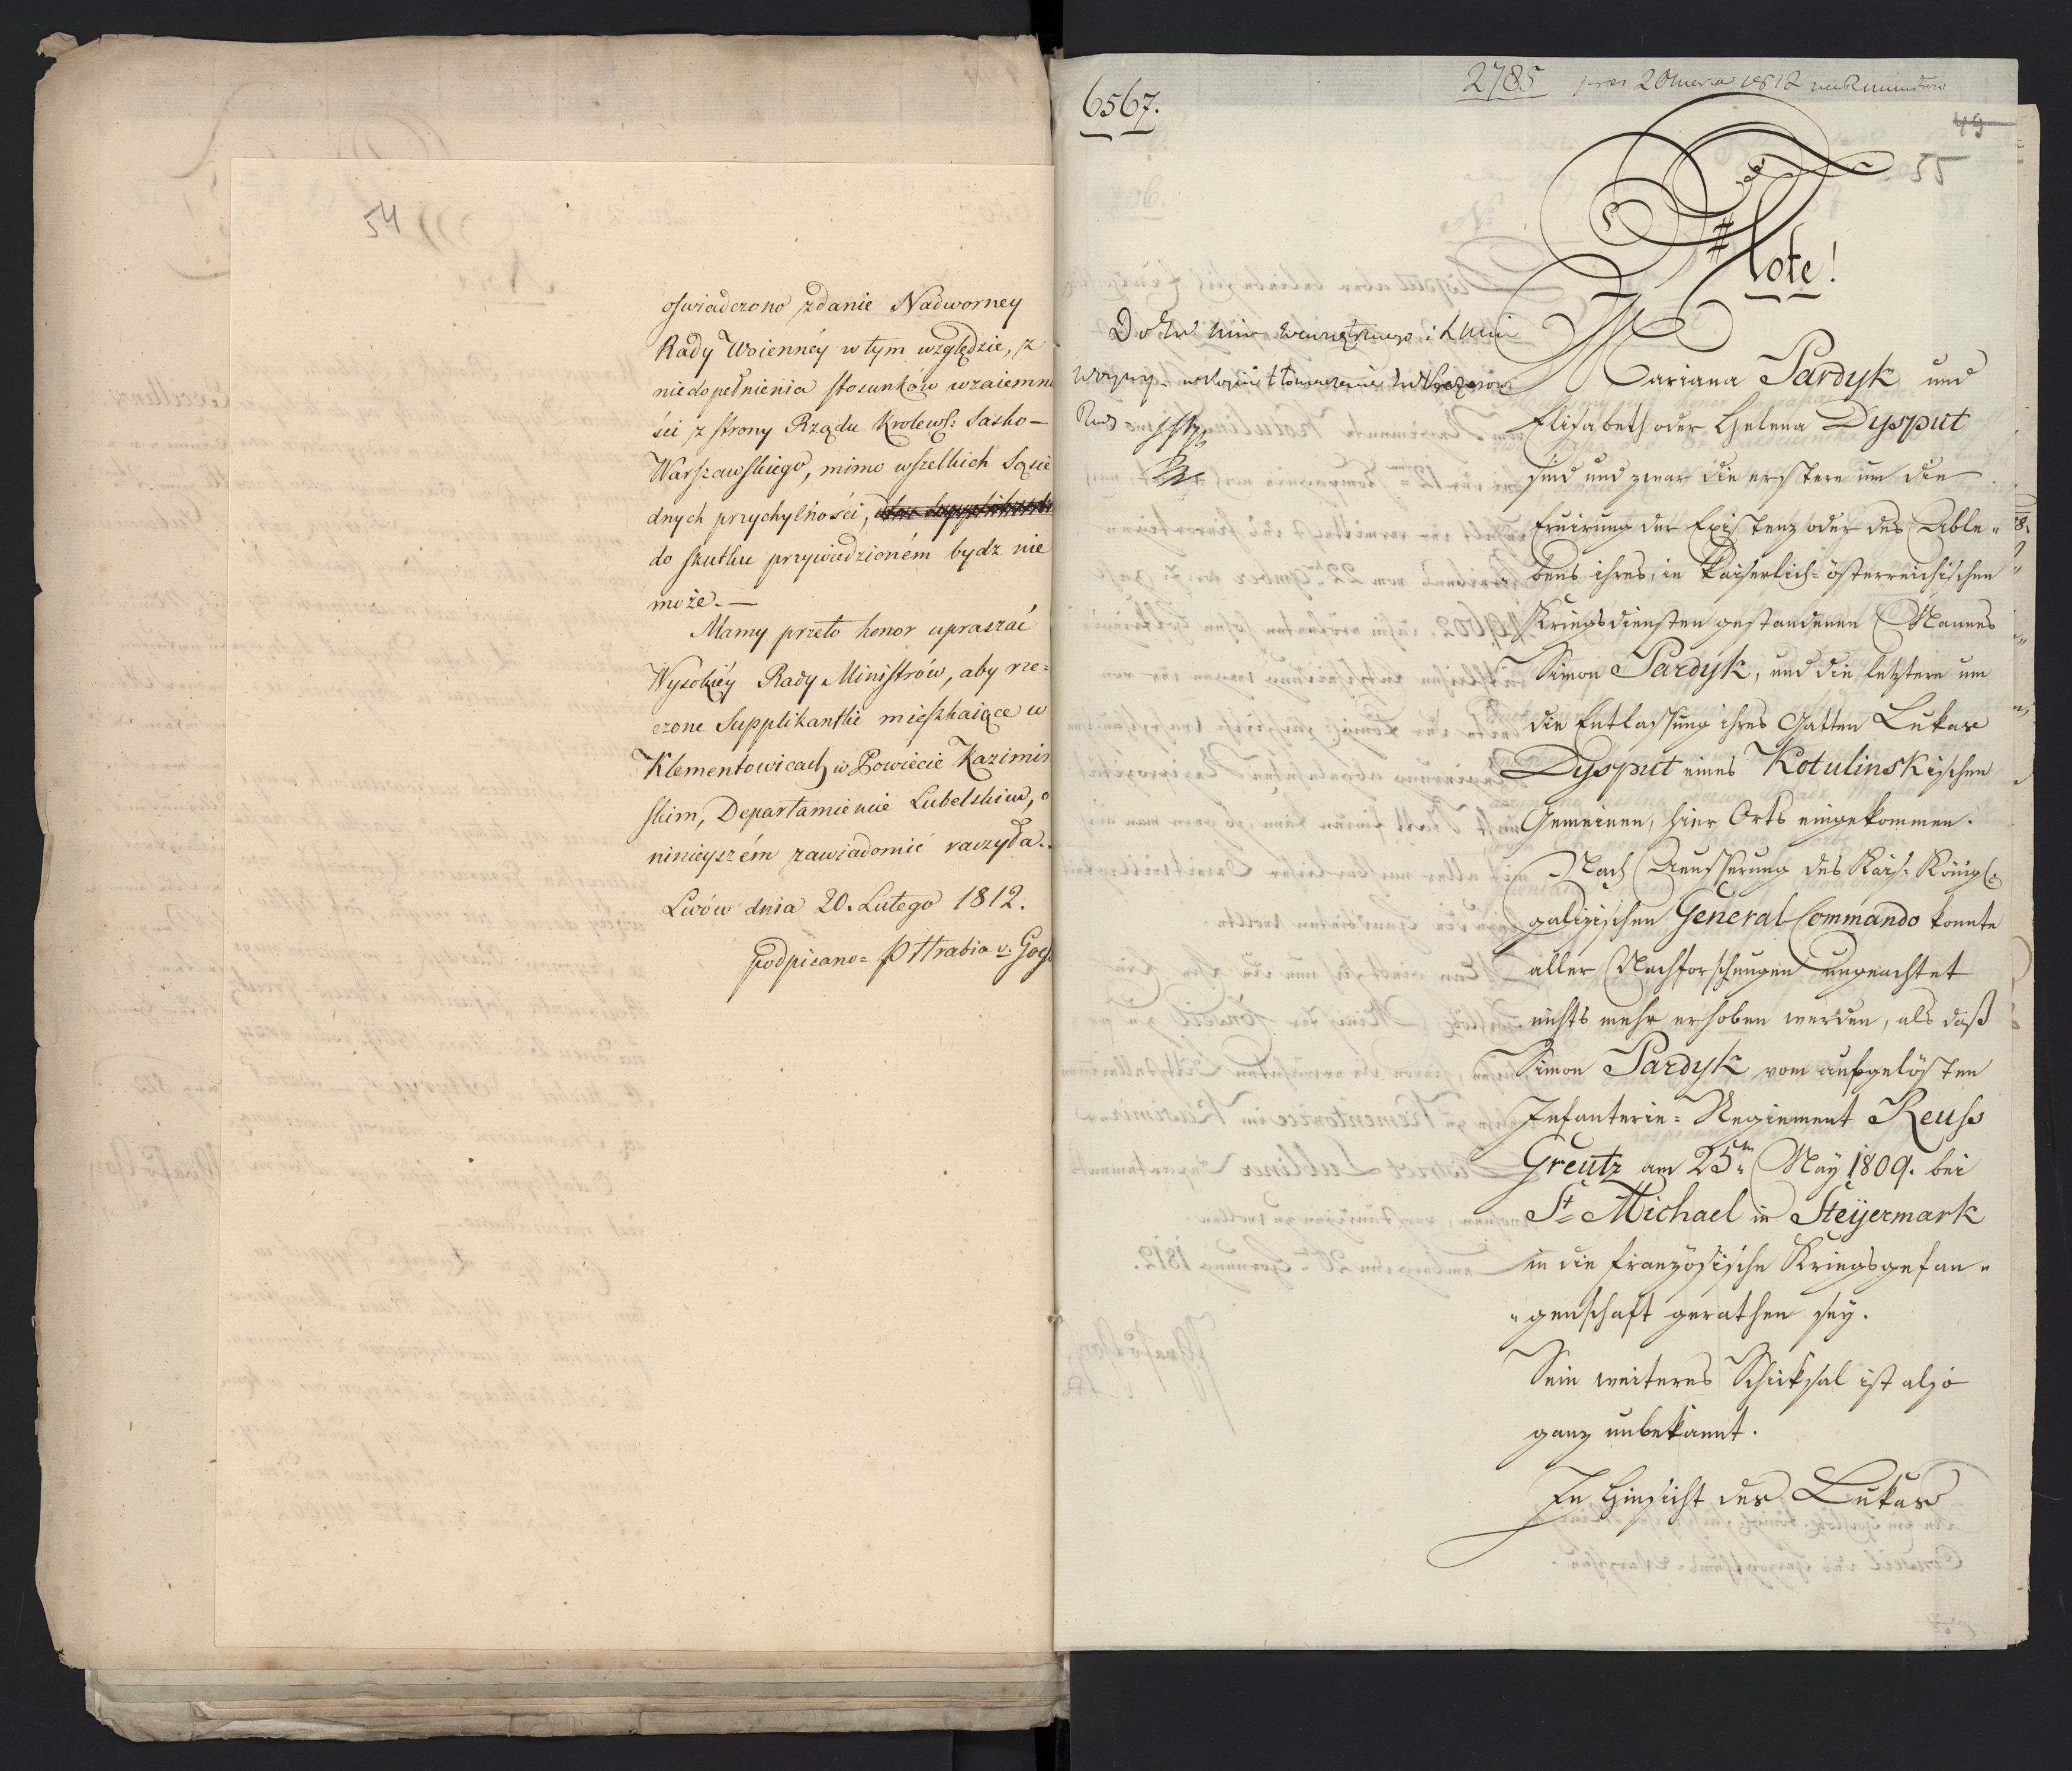 54
oswiadczono zdanie Nadworney
Rady Woienney w tym względzie, z
niedopełnienia stosunków wzaiemno
ści z strony Rządu Krolews: Sasko—
Warszawskiego, mimo wszelkich Sąsie
dnych przychylności,
do skutku przywiedzioném bydz nie
może.—
Mamy przeto honor upraszać
Wysokiéy Rady Ministrów, aby rze=
czone Supplikantki mieszkaiące w
Klementowicach w Powiecie Kazimir
skim, Departamiencie Lubelskim, o
ninieyszém zawiadomić raczyła.
Lwów dnia 20. Lutego 1812.
podpisano= P Hrabia v. Goe
6567.
2785
1812
49
55
Note!
Mariana Pardyk und
Elisabeth oder Helena Dysput
sind und zwar die erstere um die
Eruirung der Existenz oder des Able„
bens ihres, in kaiserlich-österreichischen
Kriegsdiensten gestandenen Mannes
Simon Pardyk, und die letztere um
die Entlassung ihres Gatten Lukas
Dysput eines Kotulinskischen
Gemeinen, hier Orts eingekommen.
Nach Aeusserung des Kais: Königl:
galizischen General Commando konnte
aller Nachforschungen ungeachtet
nichts mehr erhoben werden, als daß
Simon Pardyk vom aufgelösten
Infanterie=Regiement Reuss
Greutz am 25ten May 1809. bei
St Michael in Steyermark
in die französische Kriegsgefan„
„genschaft gerathen sey.
Sein weiteres Schicksal ist also
ganz unbekannt.
In Hinsicht des Lukas